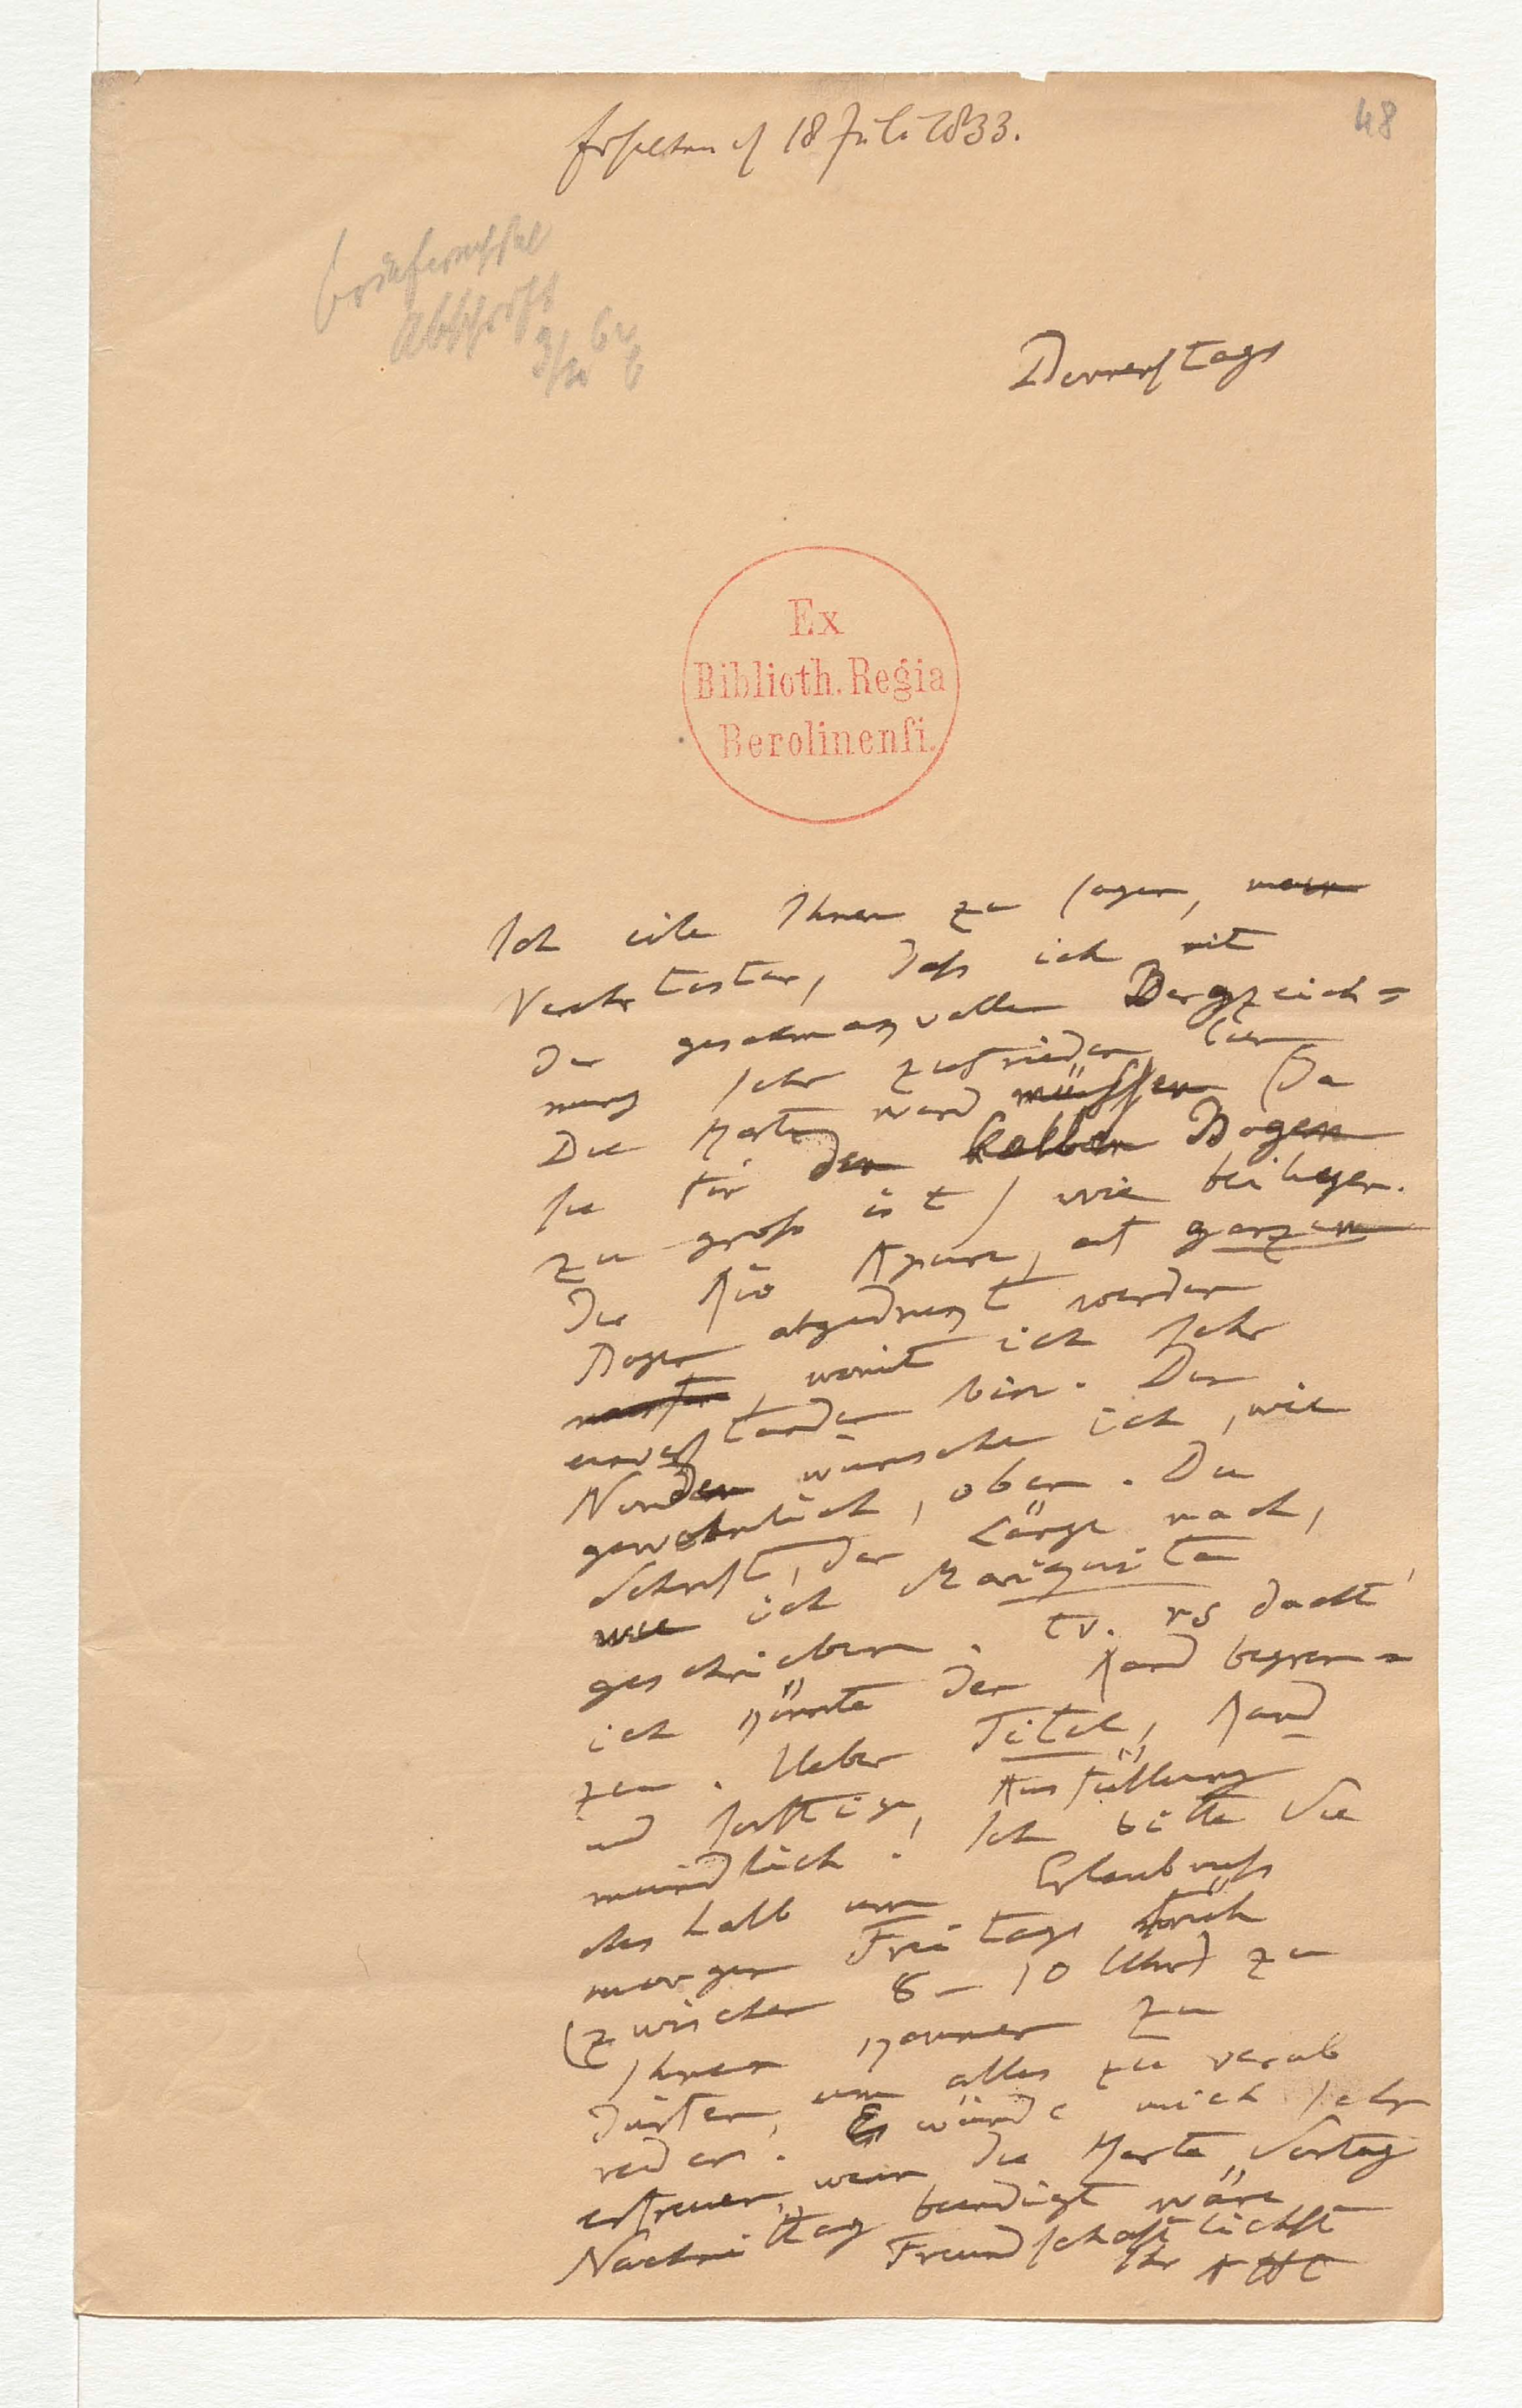 48
Erhalten d 18 Juli 1833.
Abschrift
Donnerstags
Ex
Biblioth. Regia
Berolinenſi.
Ich eile Ihnen zu sagen, mein
Verehrtester, daß ich mit
der geschmackvollen Bergzeich=
nung sehr zufrieden bin
Die Karte wird müssen (da
sie für den halben Bogen
zu groß ist) wie beiliegen.
der Rio Apure, auf ganzem
Bogen abgedrukt werden
womit ich sehr
einverstanden bin. Den
Norden wünsche ich, wie
gewöhnlich, oben. Die
Schrift, der Länge nach,
wie ich Mariquita
geschrieben. dacht
ich könnte der Rand begren=
zen. Ueber Titel, Rand
und sonstige Ausfüllung
mündlich! Ich bitte Sie
deshalb um Erlaubniß
morgen Freitags früh
(zwischen 8–10 Uhr) zu
Ihnen kommen zu
dürfen, um alles zu verab
reden. Es würde mich sehr
erfreuen, wenn die Karte Sontag
Nachmittag beendigt wäre
Freundschaftlichst
Ihr AHt